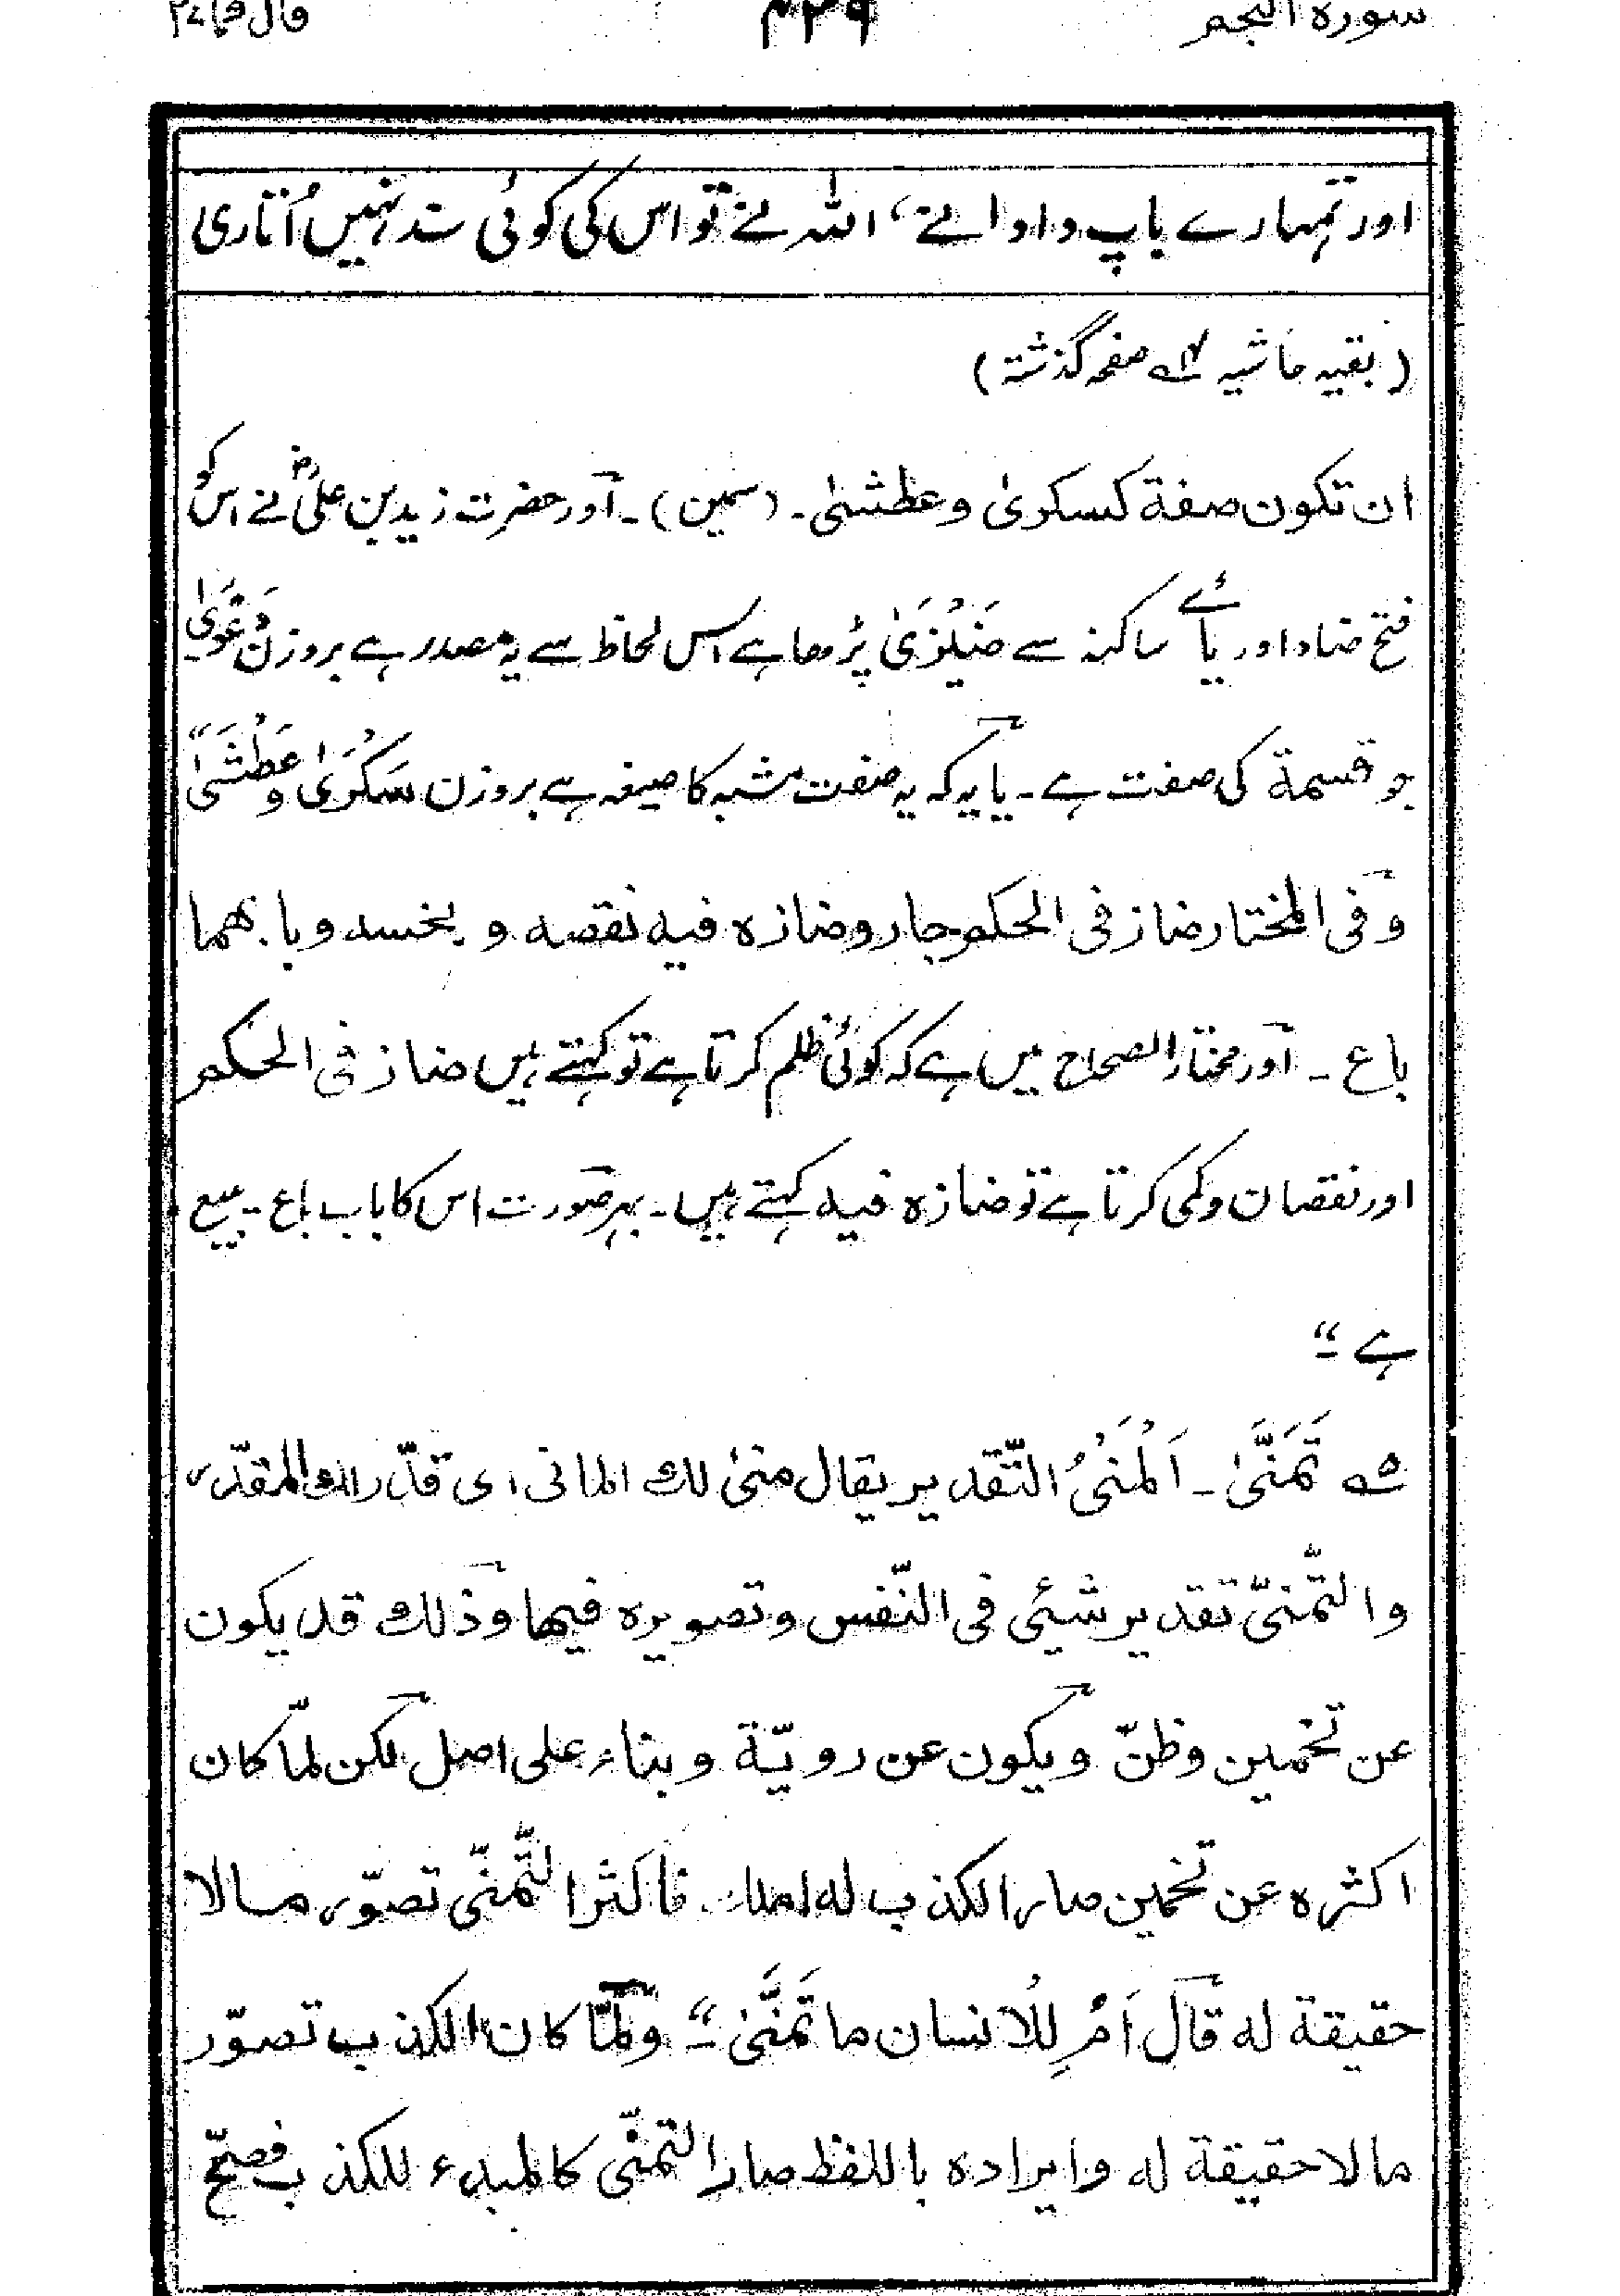 سورة النجم ۴۳۹ قال فما ۲۷
اور تمہارے باپ دادا نے، اللہ نے تو اس کی کوئی سند نہیں اُتاری
(بقیہ حاشیہ صفحہ گذشتہ)
ان تکون صفة کسکریٰ وعطشیٰ۔ (سمین)۔ اور حضرت زید بن علیؓ نے اس کو
فتح ضاد اور یائے ساکنہ سے ضَیْزَیٰ پڑھا ہے اس لحاظ سے یہ مصدر ہے بروزن دَعْوَیٰ
جو قسمة کی صفت ہے۔ یا یہ کہ یہ صفت مشبہ کا صیغہ ہے بروزن سَکْرَیٰ و عَطْشَیٰ"
وفی المختار ضاز فی الحکم جار وضازہ فیہ نقصہ و بخسہ وبابھما
باع ۔ اور مختار الصحاح میں ہے کہ کوئی ظلم کرتا ہے تو کہتے ہیں ضاز فی الحکم
اور نقصان و کمی کرتا ہے تو ضازہ فیہ کہتے ہیں۔ بہر صورت اس کا باب باع۔ یبیع
ہے۔"
۵ تَمَنّٰی۔ اَلْمَنْیُ التّقدیر یقال منیٰ لك المانی ای قدّر لك المقدّر
والتّمنّی تقدیر شیئی فی النّفس وتصویرہ فیھا وذلك قد یکون
عن تخمین وظنّ ویکون عن رویّة وبناء علی اصل لکن لمّا کان
اکثرہ عن تخمین صار الکذب له املك فاکثر التّمنّی تصوّر مالا
حقیقة له قال اَمْ لِلْاِنسان ما تَمَنّٰی۔" ولمّا کان الکذب تصوّر
مالا حقیقة له وایرادہ باللفظ صار التمنّی کالمبدء للکذب فصحّ